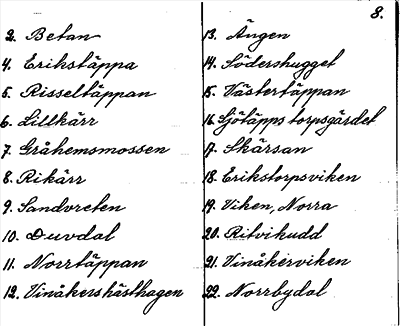 8.
2. Betan
4. Erikstäppa
5. Risseltäppan
6. Lillkärr
7. Gråhemsmossen
8. Rikärr
9. Sandvreten
10. Duvdal
11. Norrtäppan
12. Vinåkershästhagen
13. Ängen
14. Södershugget
15. Västertäppan
16. Sjötäpps torpsgärdet
17. Skärsan
18. Erikstorpsviken
19. Viken, Norra
20. Ritvikudd
21. Vinåkerviken
22. Norrbydal